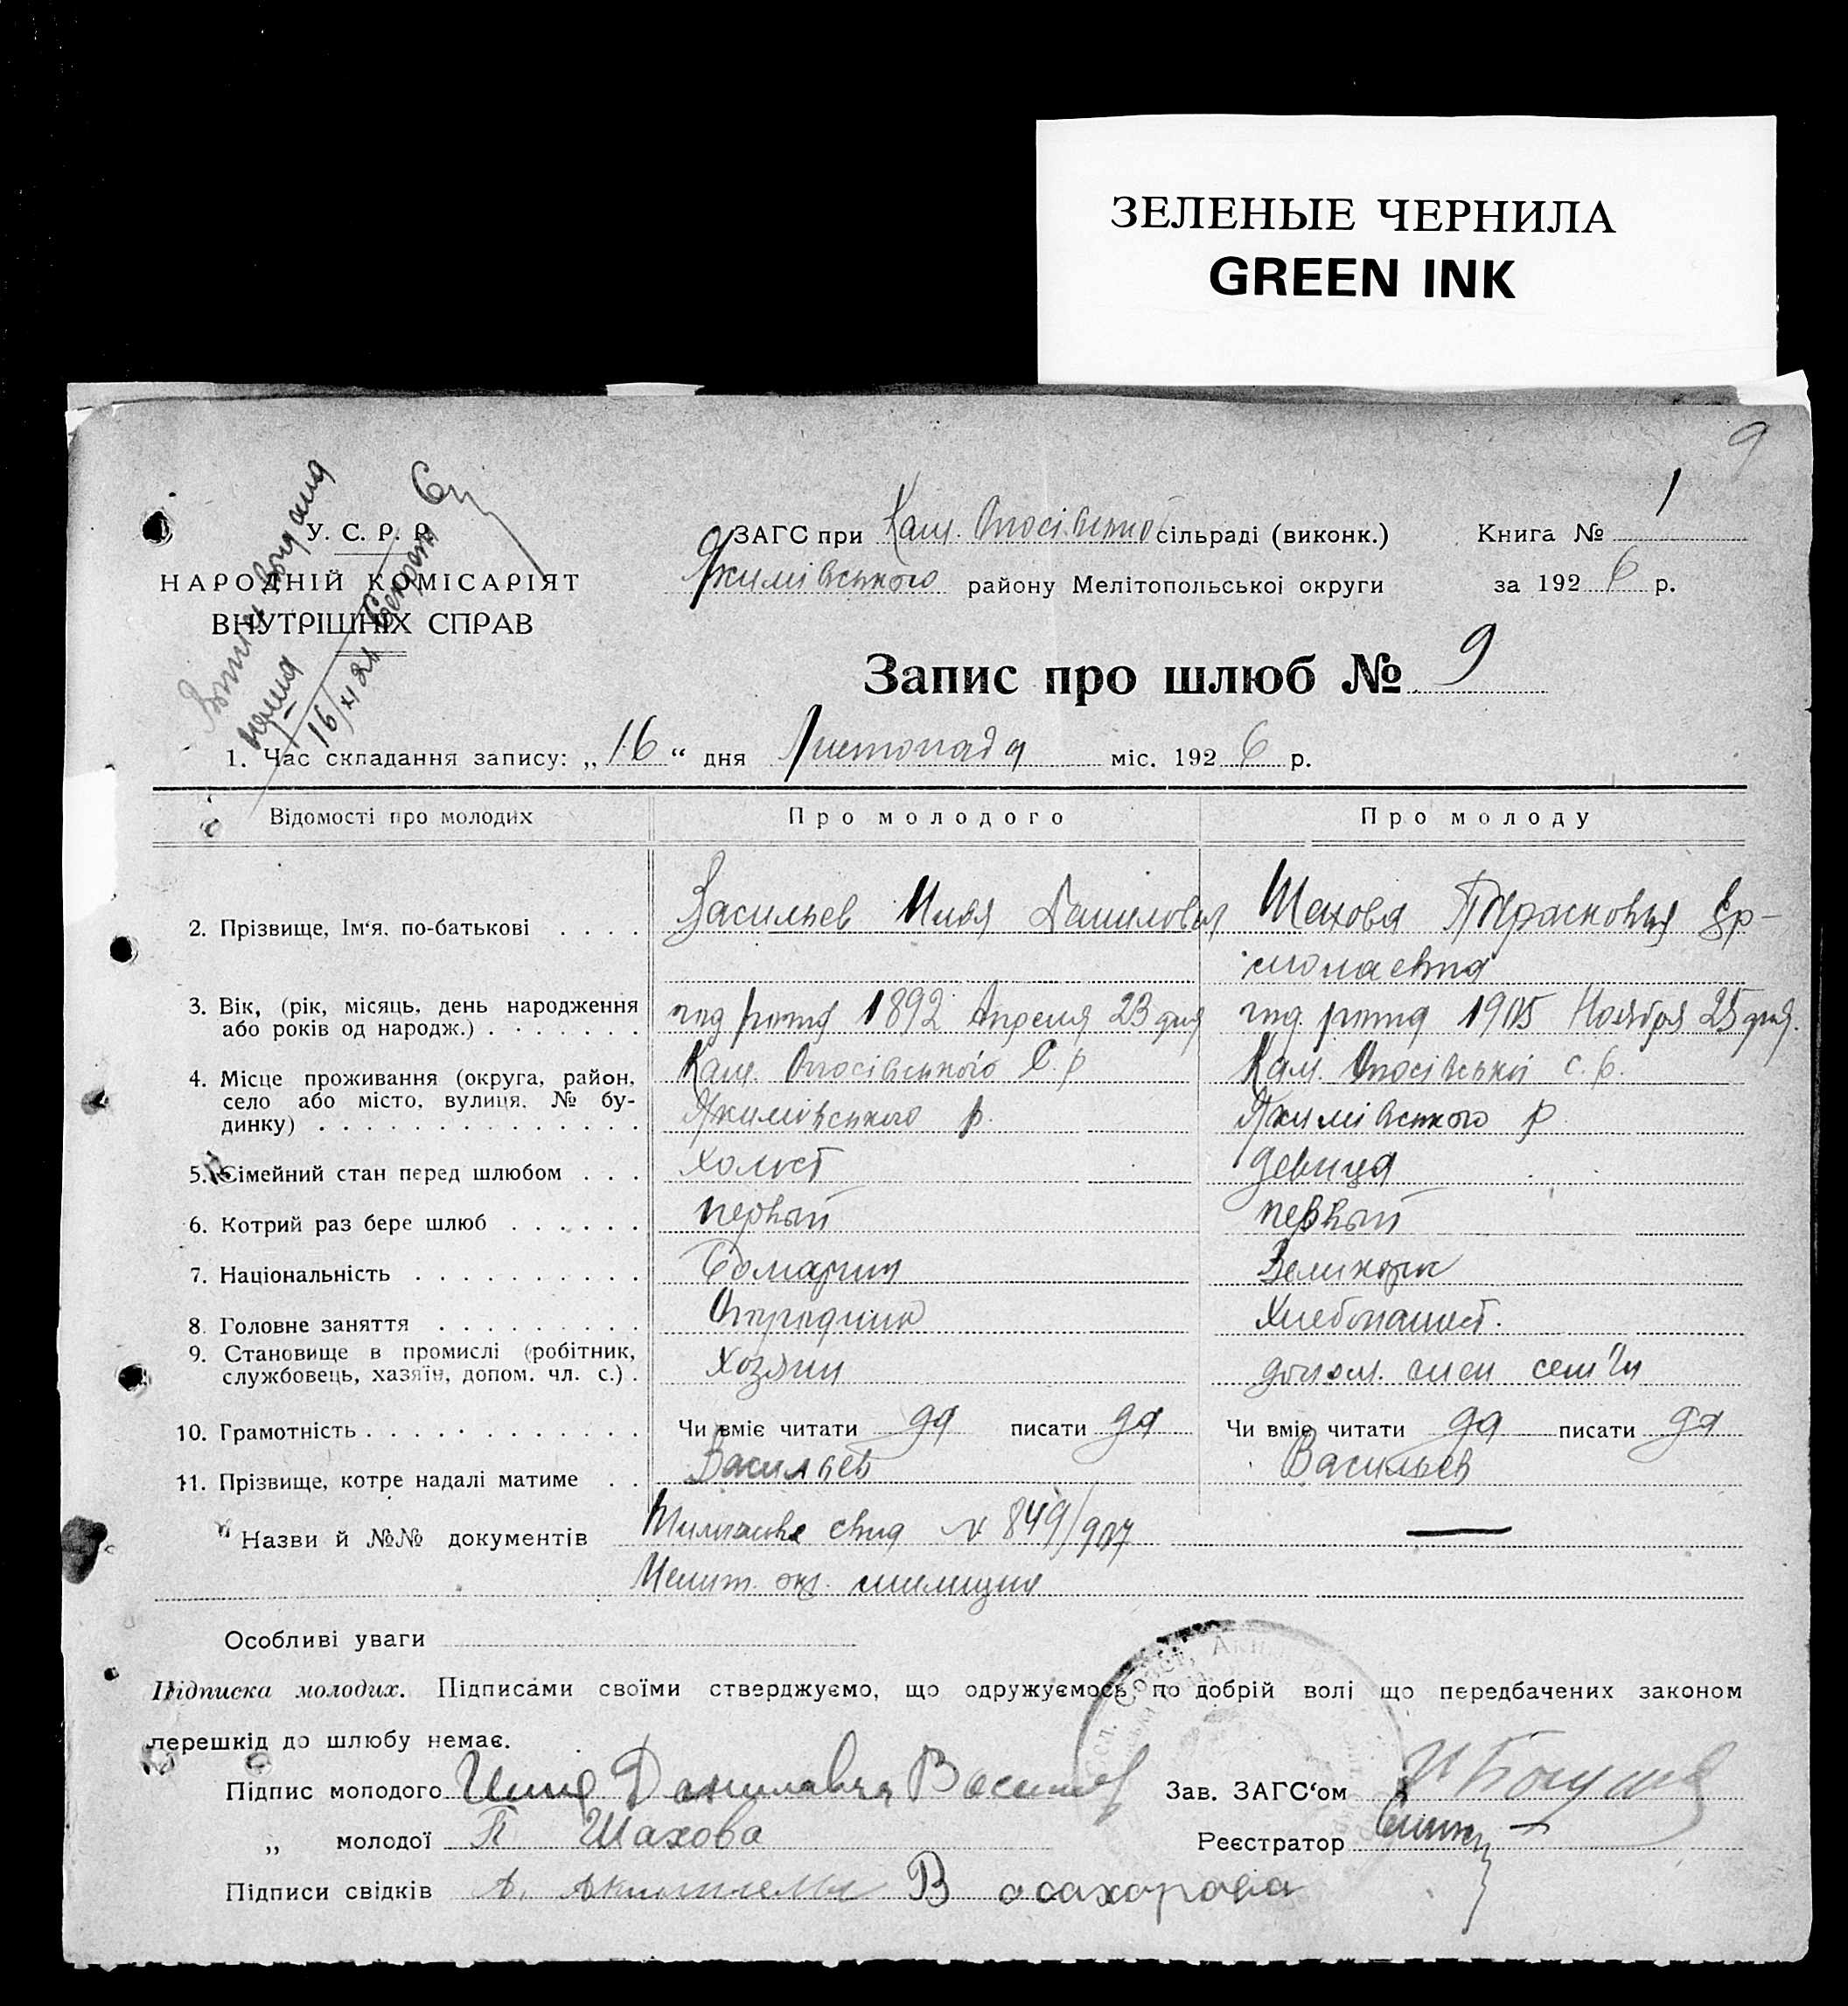 ЗЕЛЕНЫЕ ЧЕРНИЛА
GREEN INK
9
У. С. Р. Р.
НАРОДНІЙ КОМІСАРІЯТ
ВНУТРІШНІХ СПРАВ
ЗАГС при сільраді (виконк.)
Якимівського району Мелітопольської округи
Книга № 1
за 1926 р.
Запис про шлюб № 9
1. Час складання запису: „16“ дня Листопада міс. 1926 р.
Відомості про молодих Про молодого Про молоду
2. Прізвище, Ім‘я, по-батькові . . . . Васильев Илья Данилович Шахова Парасковья Ер-
молаевна
3. Вік, (рік, місяць, день народження
або років од народж.) . . . . . . год рожд 1892 Апреля 23 дня год рожд 1905 Ноября 25 дня.
4. Місце проживання (округа, район,
село або місто, вулиця, № бу-
динку) . . . . . . . . . . . . . Якимівського р. Якимівського р
5. Сімейний стан перед шлюбом . . . холост девица
6. Котрий раз бере шлюб . . . . . . первый первый
7. Національність . . . . . . . . . .
8. Головне заняття . . . . . . . . . Хлебопашест.
9. Становище в промислі (робітник,
службовець, хазяїн, допом. чл. с.) . Хозяин допом. член сем'и
10. Грамотність . . . . . . . . . . . . Чи вміє читати да писати да Чи вміє читати да писати да
11. Прізвище, котре надалі матиме . . Васильев Васильев
Назви й №№ документів свид № 849/907
Мелит. окр. милиции
Особливі уваги
Підписка молодих. Підписами своїми стверджуємо, що одружуємось по добрій волі що передбачених законом
перешкід до шлюбу немає.
Підпис молодого Илия Данилавич Василев Зав. ЗАГС‘ом
„ молодої П Шахова Реєстратор
Підписи свідків В